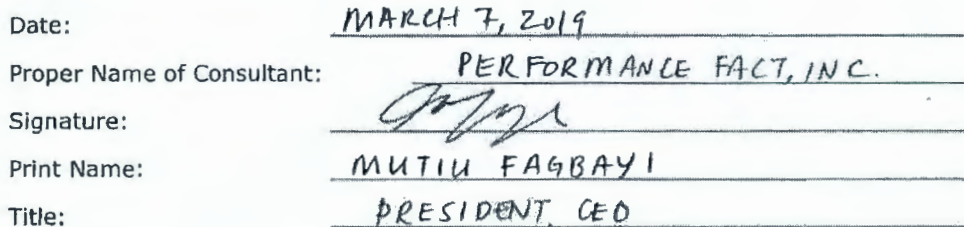 Date: MARCH 7, 2019
Proper Name of Consultant: PERFORMANCE FACT, INC.
Signature:
Print Name: MUTIU FAGBAYI
Title: PRESIDENT, CEO